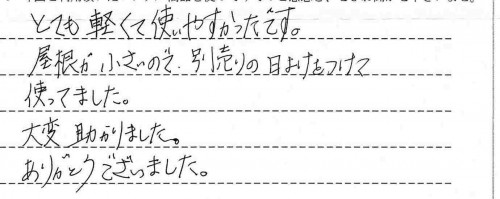 とても軽くて使いやすかったです。
屋根が小さいので、別売りの日よけをつけて
使ってました。
大変助かりました。
ありがとうございました。